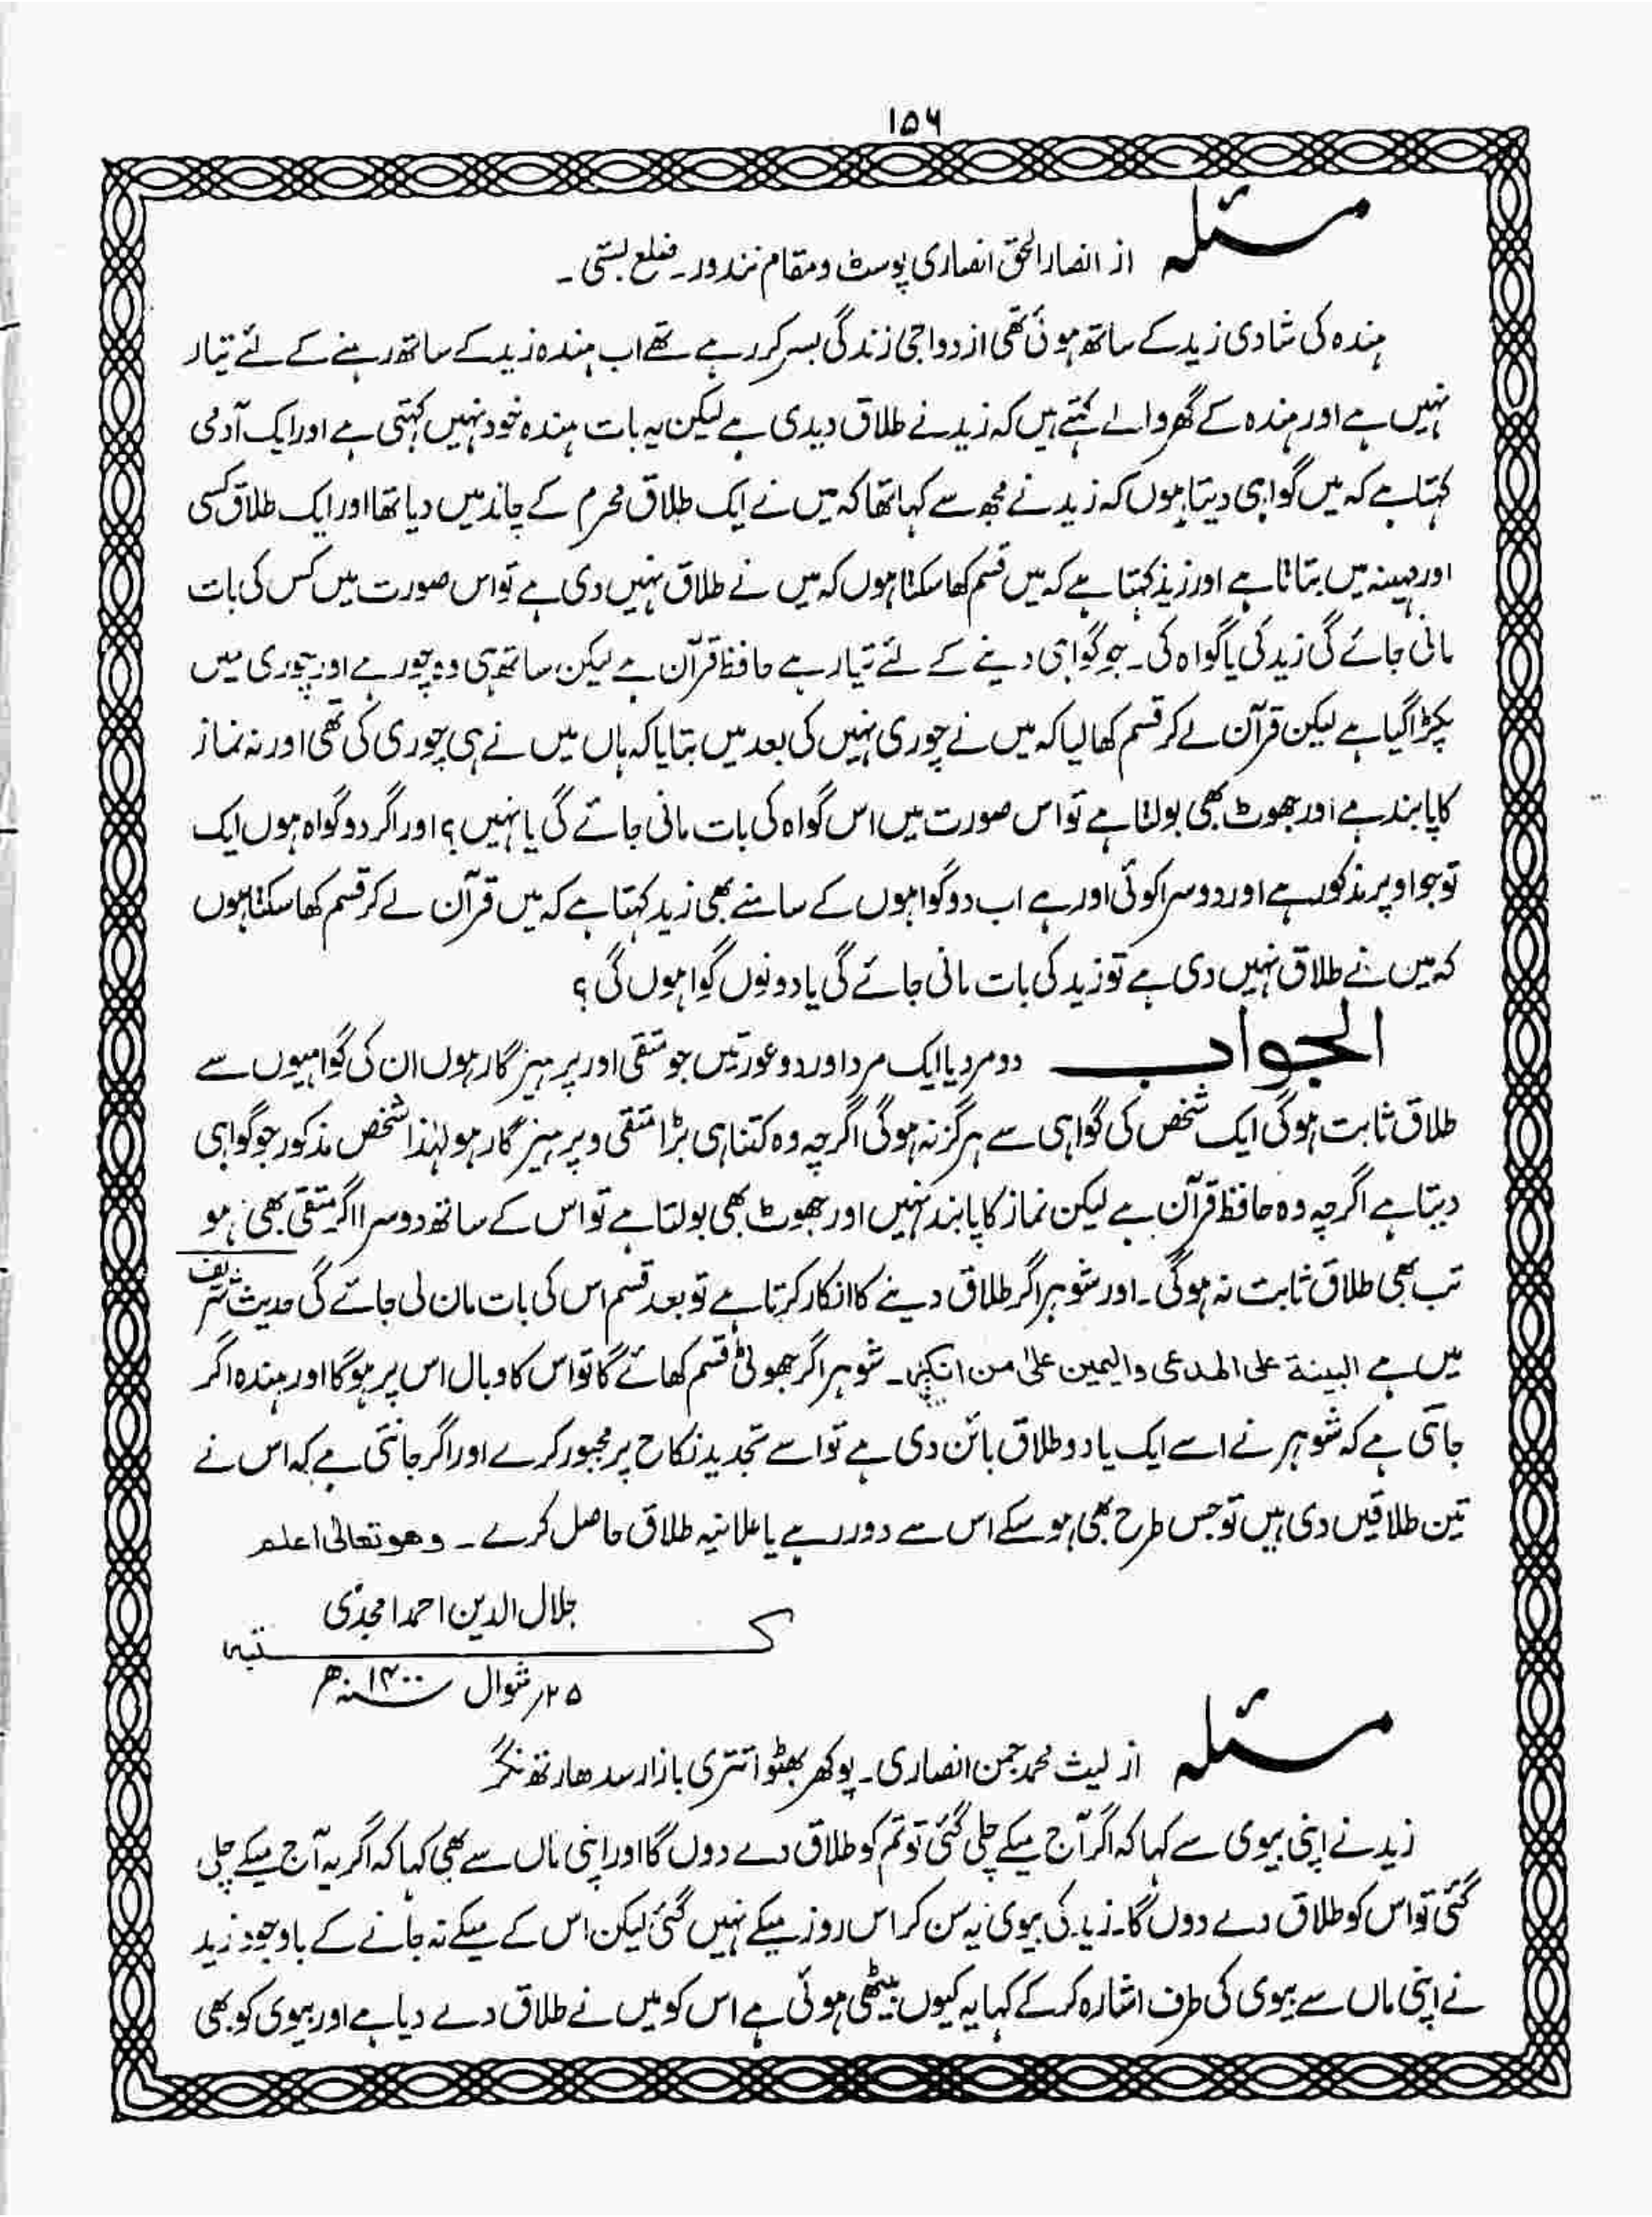 ۱۵۶
مسئلہ از انصار الحق انصاری پوسٹ و مقام نندور۔ ضلع بستی۔
ہندہ کی شادی زید کے ساتھ ہوئی تھی ازدواجی زندگی بسر کر رہے تھے اب ہندہ زید کے ساتھ رہنے کے لئے تیار
نہیں ہے اور ہندہ کے گھر والے کہتے ہیں کہ زید نے طلاق دیدی ہے لیکن یہ بات ہندہ خود نہیں کہتی ہے اور ایک آدمی
کہتا ہے کہ میں گواہی دیتا ہوں کہ زید نے مجھ سے کہا تھا کہ میں نے ایک طلاق محرم کے چاند میں دیا تھا اور ایک طلاق کسی
اور مہینہ میں بتاتا ہے اور زید کہتا ہے کہ میں قسم کھا سکتا ہوں کہ میں نے طلاق نہیں دی ہے تو اس صورت میں کس کی بات
مانی جائے گی زید کی یا گواہ کی۔ جو گواہی دینے کے لئے تیار ہے حافظ قرآن ہے لیکن ساتھ ہی وہ چور ہے اور چوری میں
پکڑا گیا ہے لیکن قرآن لے کر قسم کھا لیا کہ میں نے چوری نہیں کی بعد میں بتایا کہ ہاں میں نے ہی چوری کی تھی اور نہ نماز
کا پابند ہے اور جھوٹ بھی بولتا ہے تو اس صورت میں اس گواہ کی بات مانی جائے گی یا نہیں؟ اور اگر دو گواہ ہوں ایک
تو جو اوپر مذکور ہے اور دوسرا کوئی اور ہے اب دو گواہوں کے سامنے بھی زید کہتا ہے کہ میں قرآن لے کر قسم کھا سکتا ہوں
کہ میں نے طلاق نہیں دی ہے تو زید کی بات مانی جائے گی یا دونوں گواہوں گی؟
الجواب دو مرد یا ایک مرد اور دو عورتیں جو متقی اور پرہیزگار ہوں ان کی گواہیوں سے
طلاق ثابت ہوگی ایک شخص کی گواہی سے ہرگز نہ ہوگی اگرچہ وہ کتنا ہی بڑا متقی و پرہیزگار ہو لہٰذا شخص مذکور جو گواہی
دیتا ہے اگرچہ وہ حافظ قرآن ہے لیکن نماز کا پابند نہیں اور جھوٹ بھی بولتا ہے تو اس کے ساتھ دوسرا اگر متقی بھی ہو
تب بھی طلاق ثابت نہ ہوگی۔ اور شوہر اگر طلاق دینے کا انکار کرتا ہے تو بعد قسم اس کی بات مان لی جائے گی حدیث شریف
میں ہے البینة علی المدعی والیمین علیٰ من انکر۔ شوہر اگر جھوٹی قسم کھائے گا تو اس کا وبال اس پر ہوگا اور ہندہ اگر
جانتی ہے کہ شوہر نے اسے ایک یا دو طلاق بائن دی ہے تو اسے تجدید نکاح پر مجبور کرے اور اگر جانتی ہے کہ اس نے
تین طلاقیں دی ہیں تو جس طرح بھی ہو سکے اس سے دور رہے یا علانیہ طلاق حاصل کرے۔ وهو تعالیٰ اعلم
جلال الدین احمد امجدی
کتبہ
۲۵؍ شوال ۱۴۰۰ھ
مسئلہ از لیث محمد جمن انصاری۔ پوکھر بھٹوا اتتری بازار سدھارتھ نگر
زید نے اپنی بیوی سے کہا کہ اگر آج میکے چلی گئی تو تم کو طلاق دے دوں گا اور اپنی ماں سے بھی کہا کہ اگر یہ آج میکے چلی
گئی تو اس کو طلاق دے دوں گا۔ زید کی بیوی یہ سن کر اس روز میکے نہیں گئی لیکن اس کے میکے نہ جانے کے باوجود زید
نے اپنی ماں سے بیوی کی طرف اشارہ کر کے کہا یہ کیوں بیٹھی ہوئی ہے اس کو میں نے طلاق دے دیا ہے اور بیوی کو بھی